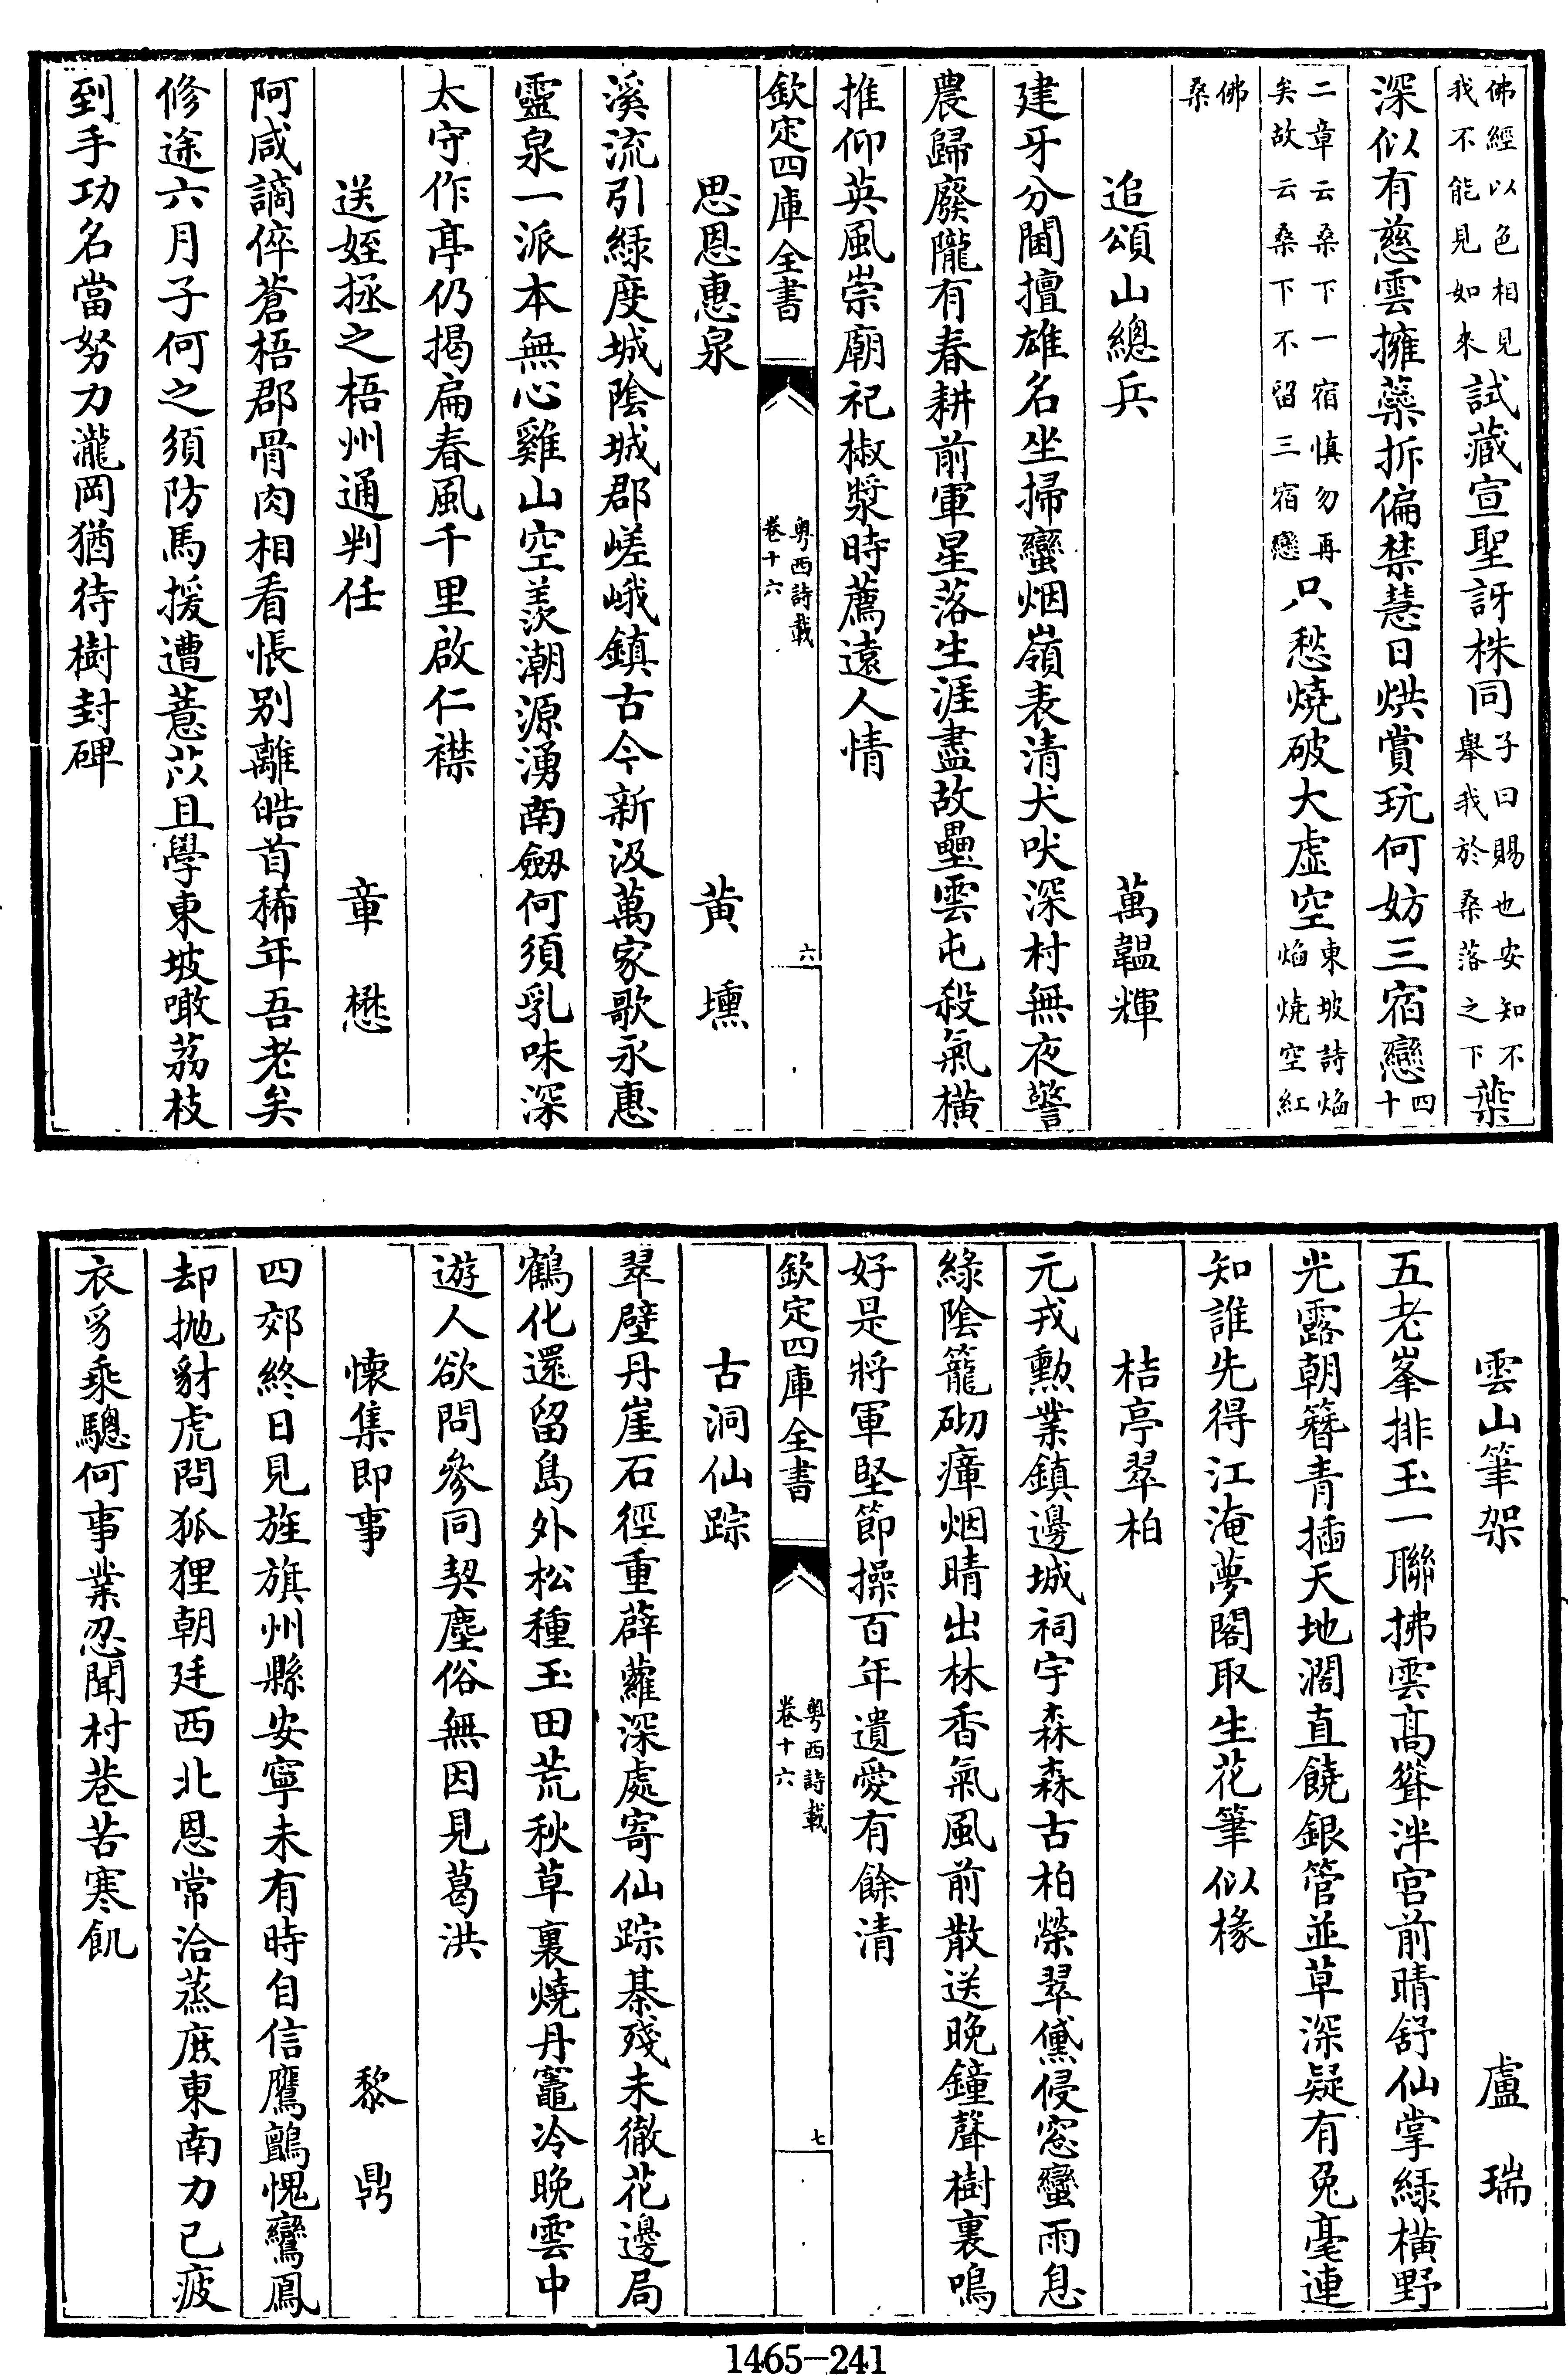 佛經以色相見我不能見如來試藏宣聖訝株同子曰賜也安知不舉我於桑落之下蘂
深似有慈雲擁藥拆偏禁慧日烘賞玩何妨三宿戀四十
二章云桑下一宿慎勿再矣故云桑下不留三宿戀只愁燒破大虛空東坡詩焰焰燒空紅
佛桑
追頌山總兵 萬韞輝
建牙分閫擅雄名坐掃蠻烟嶺表清犬吠深村無夜警
農歸廢隴有春耕前軍星落生涯盡故壘雲屯殺氣橫
推仰英風崇廟祀椒漿時薦遠人情
欽定四庫全書 粤西詩載卷十六 六
思恩惠泉 黃壎
溪流引綠度城陰城郡嵯峨鎮古今新汲萬家歌永惠
靈泉一派本無心雞山空羨潮源湧南劒何須乳味深
太守作亭仍揭扁春風千里啟仁襟
送姪拯之梧州通判任 章懋
阿咸謫倅蒼梧郡骨肉相看悵别離皓首稀年吾老矣
修途六月子何之須防馬援遭薏苡且學東坡噉荔枝
到手功名當努力瀧岡猶待樹封碑
雲山筆架 盧瑞
五老峯排玉一聯拂雲高聳泮宮前晴舒仙掌綠橫野
光露朝簪青插天地濶直饒銀管並草深疑有兔毫連
知誰先得江淹夢閣取生花筆似椽
桔亭翠柏
元戎勲業鎮邊城祠宇森森古柏榮翠黛侵窓蠻雨息
綠陰籠砌瘴烟晴出林香氣風前散送晚鐘聲樹裏鳴
好是將軍堅節操百年遺愛有餘清
欽定四庫全書 粤西詩載卷十六 七
古洞仙踪
翠壁丹崖石徑重薜蘿深處寄仙踪棊殘未徹花邊局
鶴化還留島外松種玉田荒秋草裏燒丹竈冷晚雲中
遊人欲問參同契塵俗無因見葛洪
懷集即事 黎鼎
四郊終日見旌旗州縣安寧未有時自信鷹鸇愧鸞鳳
却抛豺虎問狐狸朝廷西北恩常洽蒸庶東南力已疲
衣豸乘驄何事業忍聞村巷苦寒飢
1465-241